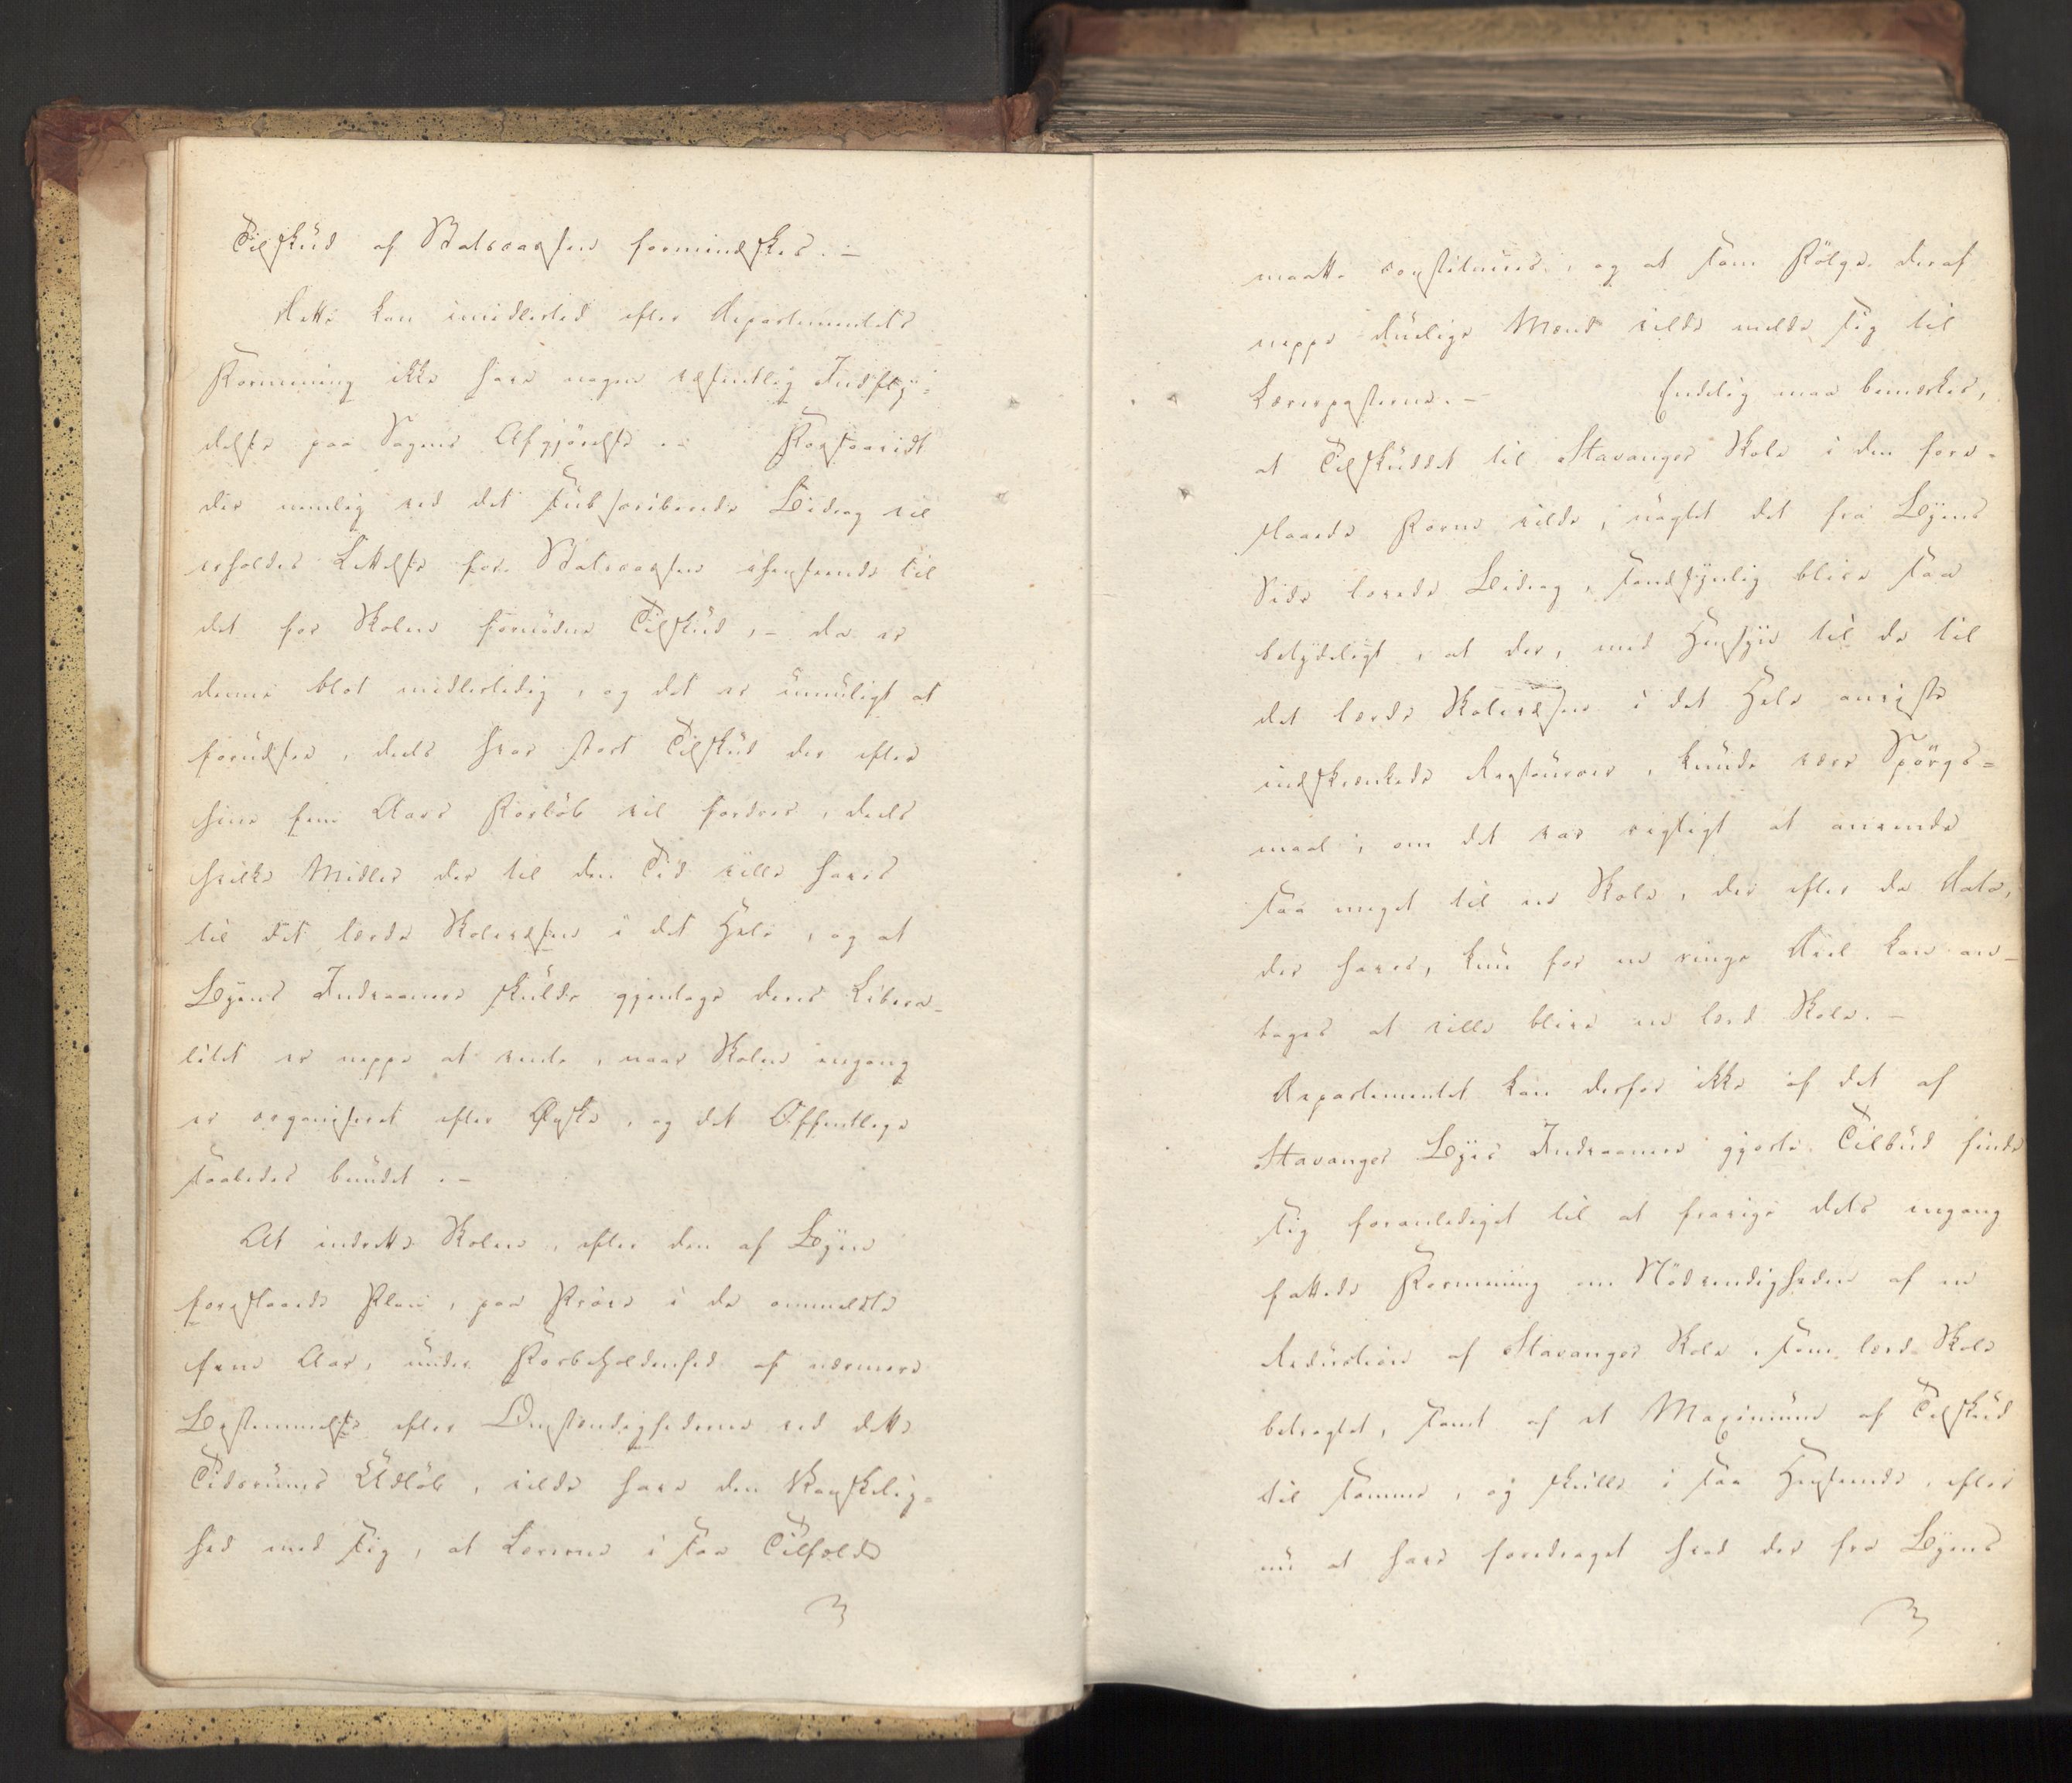 Tilskud af Statscassen formindskes. –
Dette kan imidlertid efter Departementets
Formening ikke have nogen væsentlig Indfly-
delse paa Sagens Afgjørelse. – Forsaavidt
der nemlig ved det subscriberede Bidrag vil
erholdes Lettelse for Statscassen ihenseende til
det for Skolen fornødne Tilskud, – da er
denne blot midlertidig, og det er umuligt at
forudsee, deels hvor stort Tilskud der efter
hine fem Aars Forløb vil fordres, deels
hvilke Midler der til den Tid ville haves
til det lærde Skolevæsen i det Hele, og at
Byens Indvaanere skulde gjentage deres Libera-
litet er neppe at vente, naar Skolen engang
er organiseret efter Ønske, og det Offentlige
saaledes bundet. –
At indrette Skolen, efter den af Byen
foreslaaede Plan, paa Prøve i de anmeldte
fem Aar, under Forbeholdenhed af nærmere
Bestemmelse efter Omstændighederne ved dette
Tidsrums Udløb, vilde have den Vanskelig-
hed med sig, at Lærerne i saa Tilfælde
maatte constitueres, og at som Følge deraf
neppe duelige Mænd vilde melde sig til
Lærerposterne. – Endelig maa bemærkes,
at Tilskuddet til Stavanger Skole i den fore-
slaaede Form vilde, uagtet det fra Byens
Side lovede Bidrag, sandsynlig blive saa
betydeligt, at der, med Hensyn til de til
det lærde Skolevæsen i det Hele anviste
indskrænkede Ressourcer, kunde være Spørgs-
maal, om det var rigtigt at anvende
saa meget til en Skole, der efter de Data,
der haves, kun for en ringe Deel kan an-
tages at ville blive en lærd Skole. –
Departementet kan derfor ikke af det af
Stavanger Byes Indvaanere gjorte Tilbud finde
sig foranlediget til at fravige dets engang
fattede Formening om Nødvendigheden af en
Reduction af Stavanger Skole, som lærd Skole
betragtet, samt af et Maximum af Tilskud
til samme, og skulle i saa Henseende, efter
nu at have foredraget hvad der fra Byens